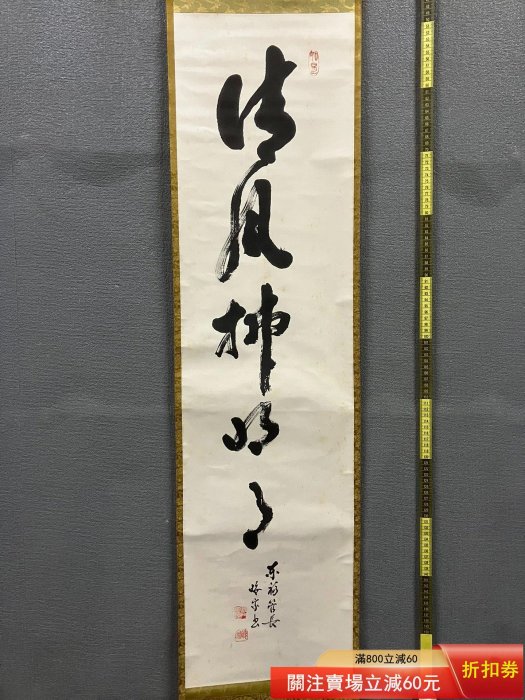 清風拂明月
東福管長
書
滿800立減60
關注賣場立減60元
折扣券